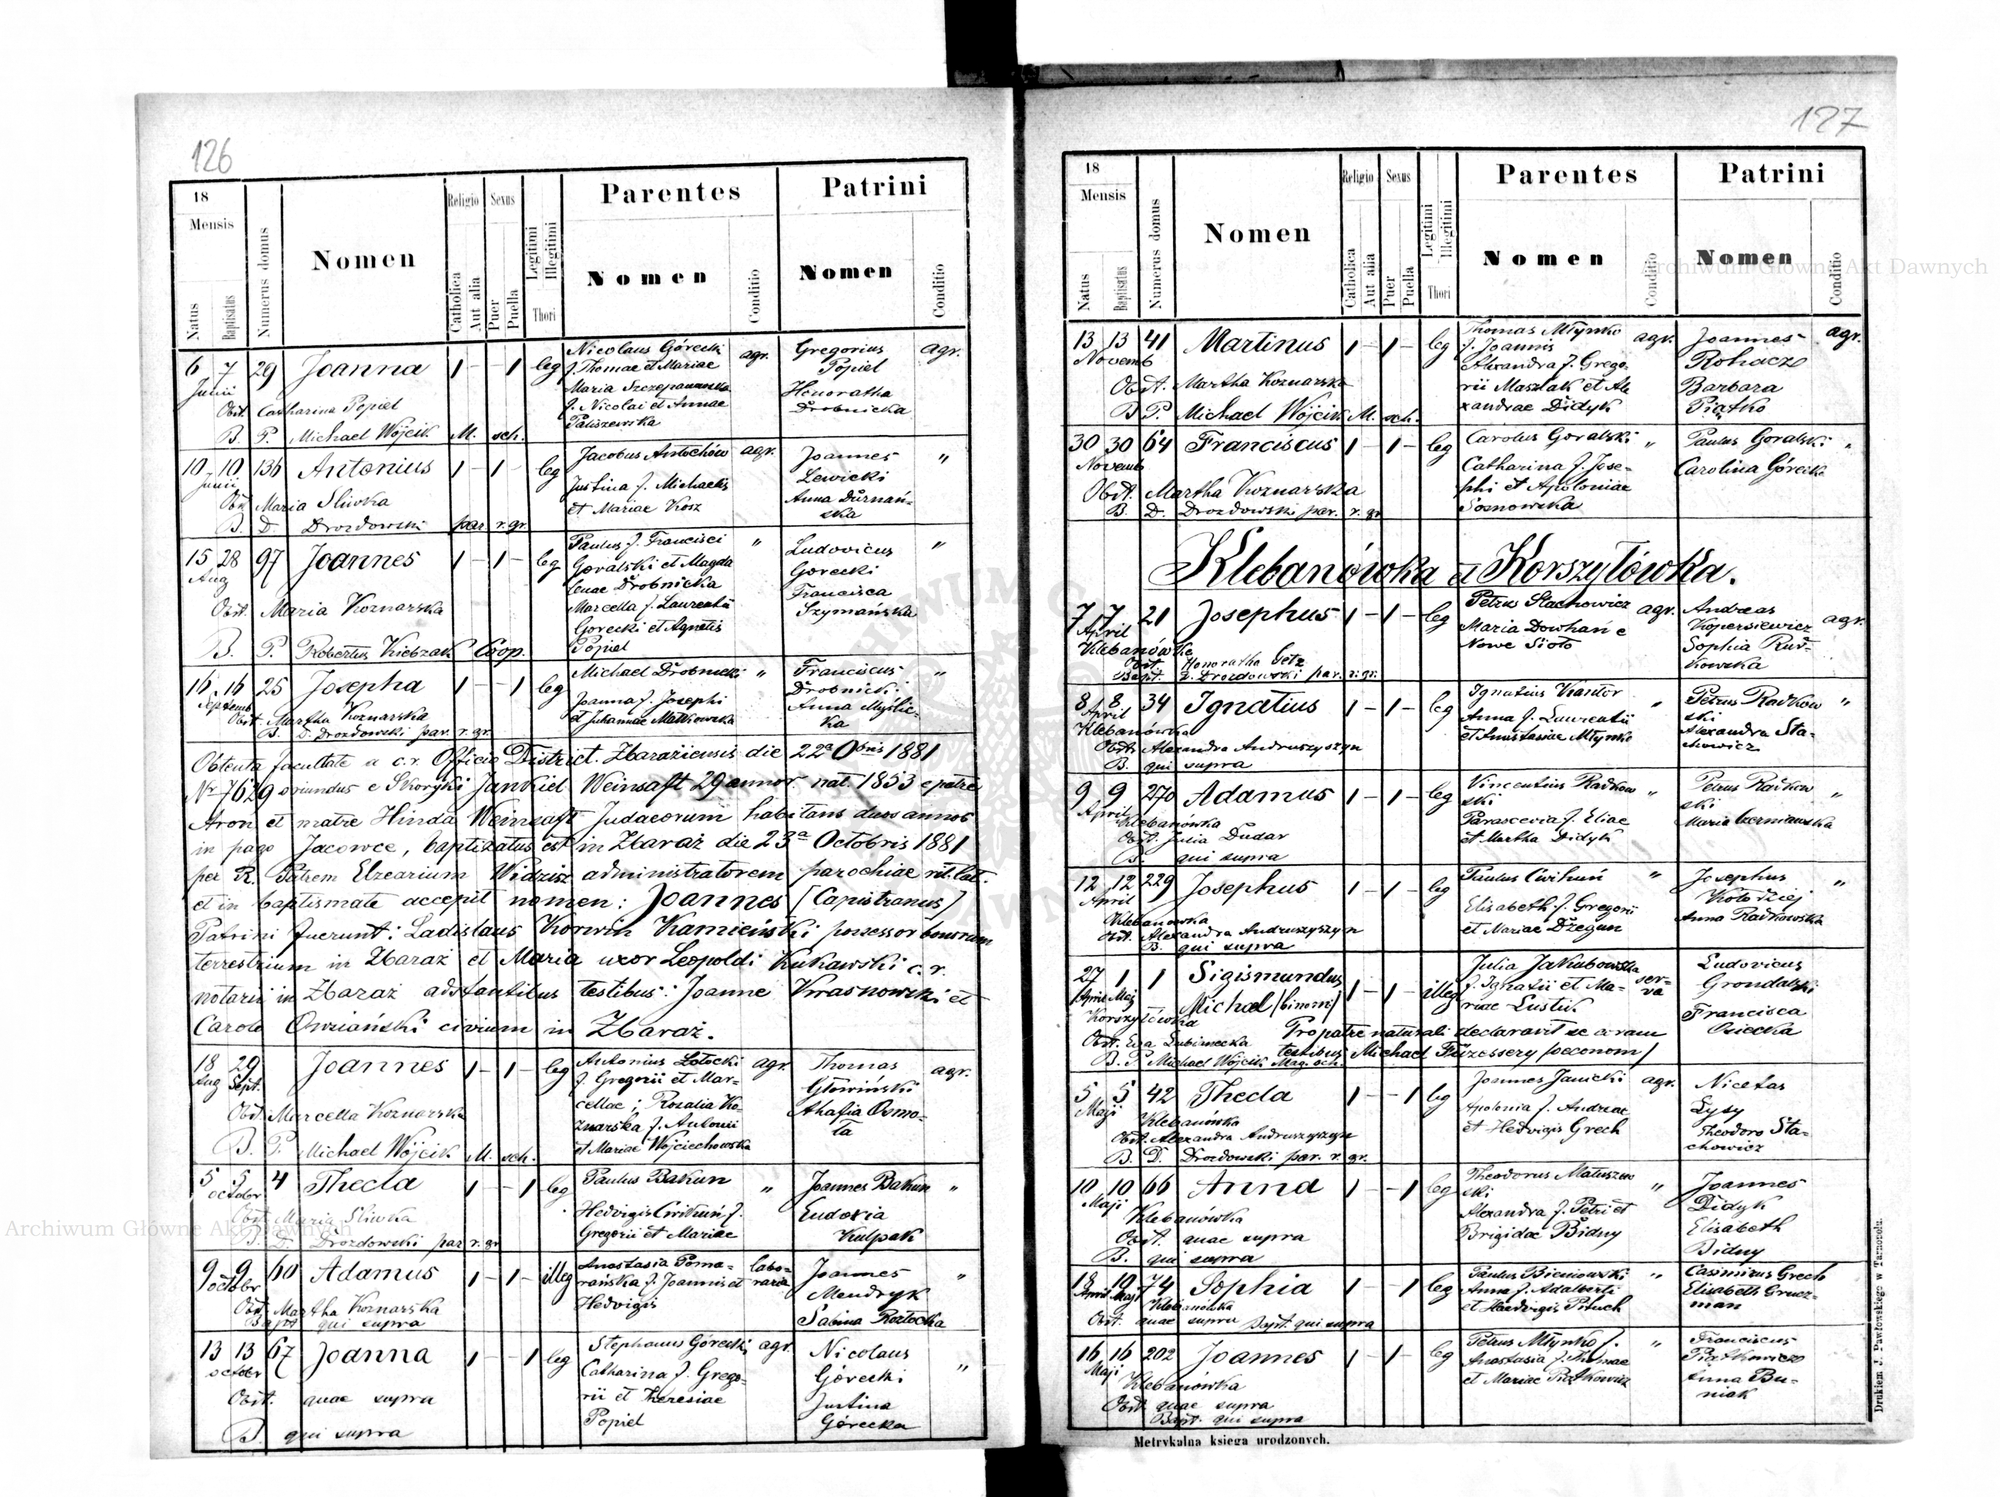 126
18
Mensis
Natus
Baptisatus
Numerus domus
Nomen
Religio
Catholica
Aut alia
Sexus
Puer
Puella
Legitimi
Illegitimi
Thori
Parentes
Nomen
Conditio
Patrini
Nomen
Conditio
6 7 29 Joanna 1 — 1 leg
Junii
Obst. Catharina Popiel
B. P. Michael Wójcik M. sch.
Nicolaus Górecki agr.
f. Thomae et Mariae
Maria Szczepanowska
f. Nicolai et Annae
Paliszewska
Gregorius agr.
Popiel
Honoratha
Drobnicka
10 10 136 Antonius 1 — 1 — leg
Junii
Obst. Maria Sliwka
B. D. Drozdowski par. r. gr.
Jacobus Antochów agr.
Justina f. Michaelis
et Mariae Kosz
Joannes "
Lewicki
Anna Durnań-
ska
15 28 97 Joannes 1 — 1 — leg
Aug
Obst. Maria Koznarska
B. P. Robertus Kiebzak Coop.
Paulus f. Francisci "
Goralski et Magda
lenae Drobnicka
Marcella f. Laurentii
Gorecki et Agnetis
Popiel
Ludovicus "
Gorecki
Francisca
Szymańska
16 16 25 Josepha 1 — 1 leg
Septemb
Obst. Martha Koznarska
B. D. Drozdowski par. r. gr.
Michael Drobnicki "
Joanna f. Josephi
et Juliannae Malkowska
Franciscus "
Drobnicki
Anna Myślic-
ka
Obtenta facultate a c.r. Officio District. Zbaraziensis die 22a Obris 1881
Nr 7629 oriundus e Skoryki Jankiel Weinsaft 29 annor. nat. 1853 e patre
Aron et matre Hinda Weinsaft Judaeorum habitans duos annos
in pago Jacowce, baptizatus est in Zbaraż die 23a Octobris 1881
per R. Patrem Elzearium Widzisz administratorem parochiae rit. lat.
et in baptismate accepit nomen: Joannes [Capistranus]
Patrini fuerunt: Ladislaus Korwin Kamieński possessor bonorum
terrestrium in Zbaraż et Maria uxor Leopoldi Kukawski c.r.
notarii in Zbaraż adstantibus testibus: Joanne Krasnowski et
Carolo Owziański civium in Zbaraż.
18 29 Joannes 1 — 1 — leg
Aug Sept.
Obst. Marcella Koznarska
B. P. Michael Wójcik M. sch.
Antonius Łotocki agr.
f. Gregorii et Mar-
cellae; Rosalia Ko-
znarska f. Antonii
et Mariae Wojciechowska
Thomas agr.
Głowiński
Ahafia Osmo-
ła
5 5 4 Thecla 1 — 1 leg
octobr
Obst. Maria Sliwka
B. D. Drozdowski par r. gr
Paulus Bakun "
Hedvigis Cwikuń f.
Gregorii et Mariae
Joannes Bakun "
Eudoxia
Kulpak
9 9 60 Adamus 1 — 1 — illeg
octobr
Obst. Martha Koznarska
Bapt qui supra
Anastasia Poma- labo-
rańska f. Joannis et raria
Hedvigis
Joannes "
Mendryk
Sabina Roztocka
13 13 67 Joanna 1 — 1 leg
octobr
Obst. quae supra
B. qui supra
Stephanus Górecki agr.
Catharina f. Grego-
rii et Theresiae
Popiel
Nicolaus "
Górecki
Justina
Górecka
127
18
Mensis
Natus
Baptisatus
Numerus domus
Nomen
Religio
Catholica
Aut alia
Sexus
Puer
Puella
Legitimi
Illegitimi
Thori
Parentes
Nomen
Conditio
Patrini
Nomen
Conditio
13 13 41 Martinus 1 — 1 — leg
Novemb
Obst. Martha Koznarska
B. P. Michael Wójcik M. sch.
Thomas Młynko agr.
f. Joannis
Alexandra f. Grego-
rii Maszlak et Ale
xandrae Didyk
Joannes agr.
Rohacz
Barbara
Piątko
30 30 64 Franciscus 1 — 1 — leg
Novemb
Obst. Martha Koznarska
B. D. Drozdowski par. r. gr
Carolus Goralski "
Catharina f. Jose-
phi et Apoloniae
Sosnowska
Paulus Goralski "
Carolina Górecka
Klebanówka et Korszyłówka.
7 7 21 Josephus 1 — 1 — leg
April
Klebanówka
Obst. Honoratha Getz
Bapt. D. Drozdowski par. r. gr.
Petrus Stachowicz agr.
Maria Dowhań e
Nowe Sioło
Andreas agr.
Kapersiewicz
Sophia Rud-
kowska
8 8 34 Ignatius 1 — 1 — leg
April
Klebanówka
Obst. Alexandra Andruszyszyn
B. qui supra
Ignatius Kantor "
Anna f. Laurentii
et Anastasiae Młynko
Petrus Radkow "
ski
Alexandra Sta-
chowicz
9 9 270 Adamus 1 — 1 — leg
April
Klebanówka
Obst. Julia Dudar
B. qui supra
Vincentius Radkow "
ski
Parascevia f. Eliae
et Martha Didyk
Petrus Radkow "
ski
Maria Czerniawska
12 12 229 Josephus 1 — 1 — leg
April
Klebanówka
Obst. Alexandra Andruszyszyn
B. qui supra
Paulus Cwihuń "
Elisabeth f. Gregorii
et Mariae Dzegan
Josephus "
Kołodziej
Anna Radkowska
27 1 1 Sigismundus
April Maj Michael /binom/ 1 — 1 — illeg
Korszyłówka
Obst. Eva Dubiniecka
B. P. Michael Wójcik Mag. sch.
Julia Jakubowska ser-
f. Ignatii et Ma- va
riae Lustik.
Pro patre naturali declaravit se coram
testibus Michael Füzessery /oeconom/
Ludovicus
Grondalski
Francisca
Osiecka
5 5 42 Thecla 1 — 1 leg
Maji
Klebanówka
Obst. Alexandra Andruszyszyn
B. D. Drozdowski par. r. gr.
Joannes Janicki agr.
Apolonia f. Andreae
et Hedvigis Grech
Nicetas
Łysy
Theodora Sta-
chowicz
10 10 66 Anna 1 — 1 leg
Maji
Klebanówka
Obst. quae supra
B. qui supra
Theodorus Matuszew "
ski
Alexandra f. Petri et
Brigidae Bidny
Joannes
Didyk
Elisabeth
Bidny
18 10 74 Sophia 1 — 1 leg
April Maji
Klebanówka
Obst. quae supra Bapt. qui supra
Paulus Bieniowski "
Anna f. Adalberti
et Hedvigis Pituch
Casimirus Grech
Elisabeth Grucz-
man
16 16 202 Joannes 1 — 1 — leg
Maji
Klebanówka
Obst. quae supra
Bapt. qui supra
Petrus Młynko f. "
Anastasia f. Thomae
et Mariae Piątkowicz
Franciscus
Piątkowicz
Anna Bu-
niak
Metrykalna księga urodzonych.
Drukiem J. Pawłowskiego w Tarnopolu.
Archiwum Główne Akt Dawnych
Archiwum Główne Akt Dawnych